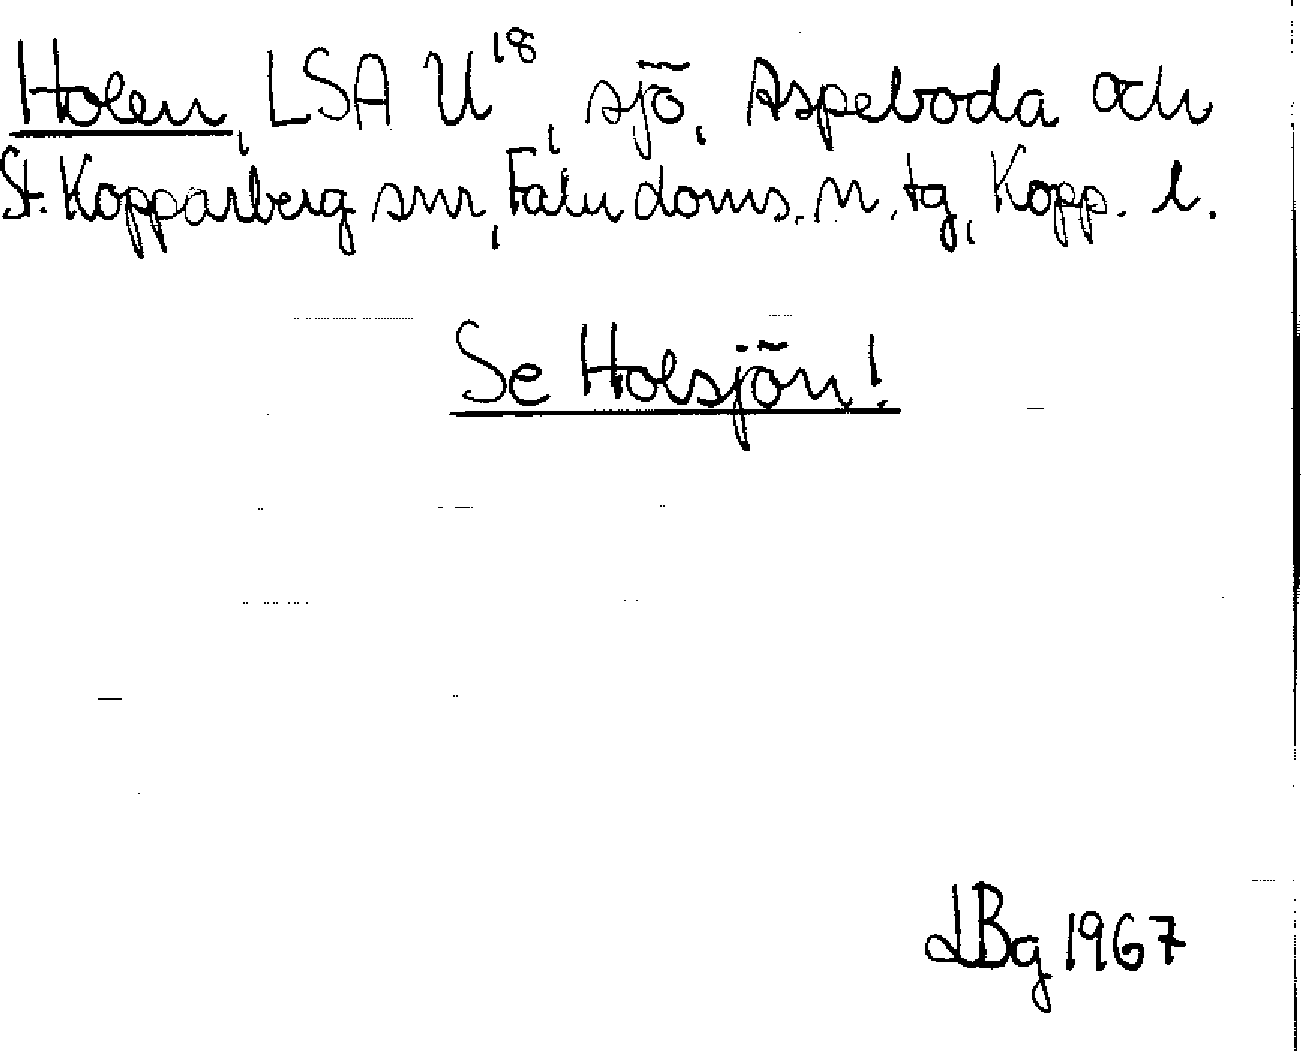 Holen, LSA U¹⁸, sjö, Aspeboda och
St. Kopparberg snr, Falu doms. n. tg, Kopp. l.
Se Holsjön!
LBg 1967